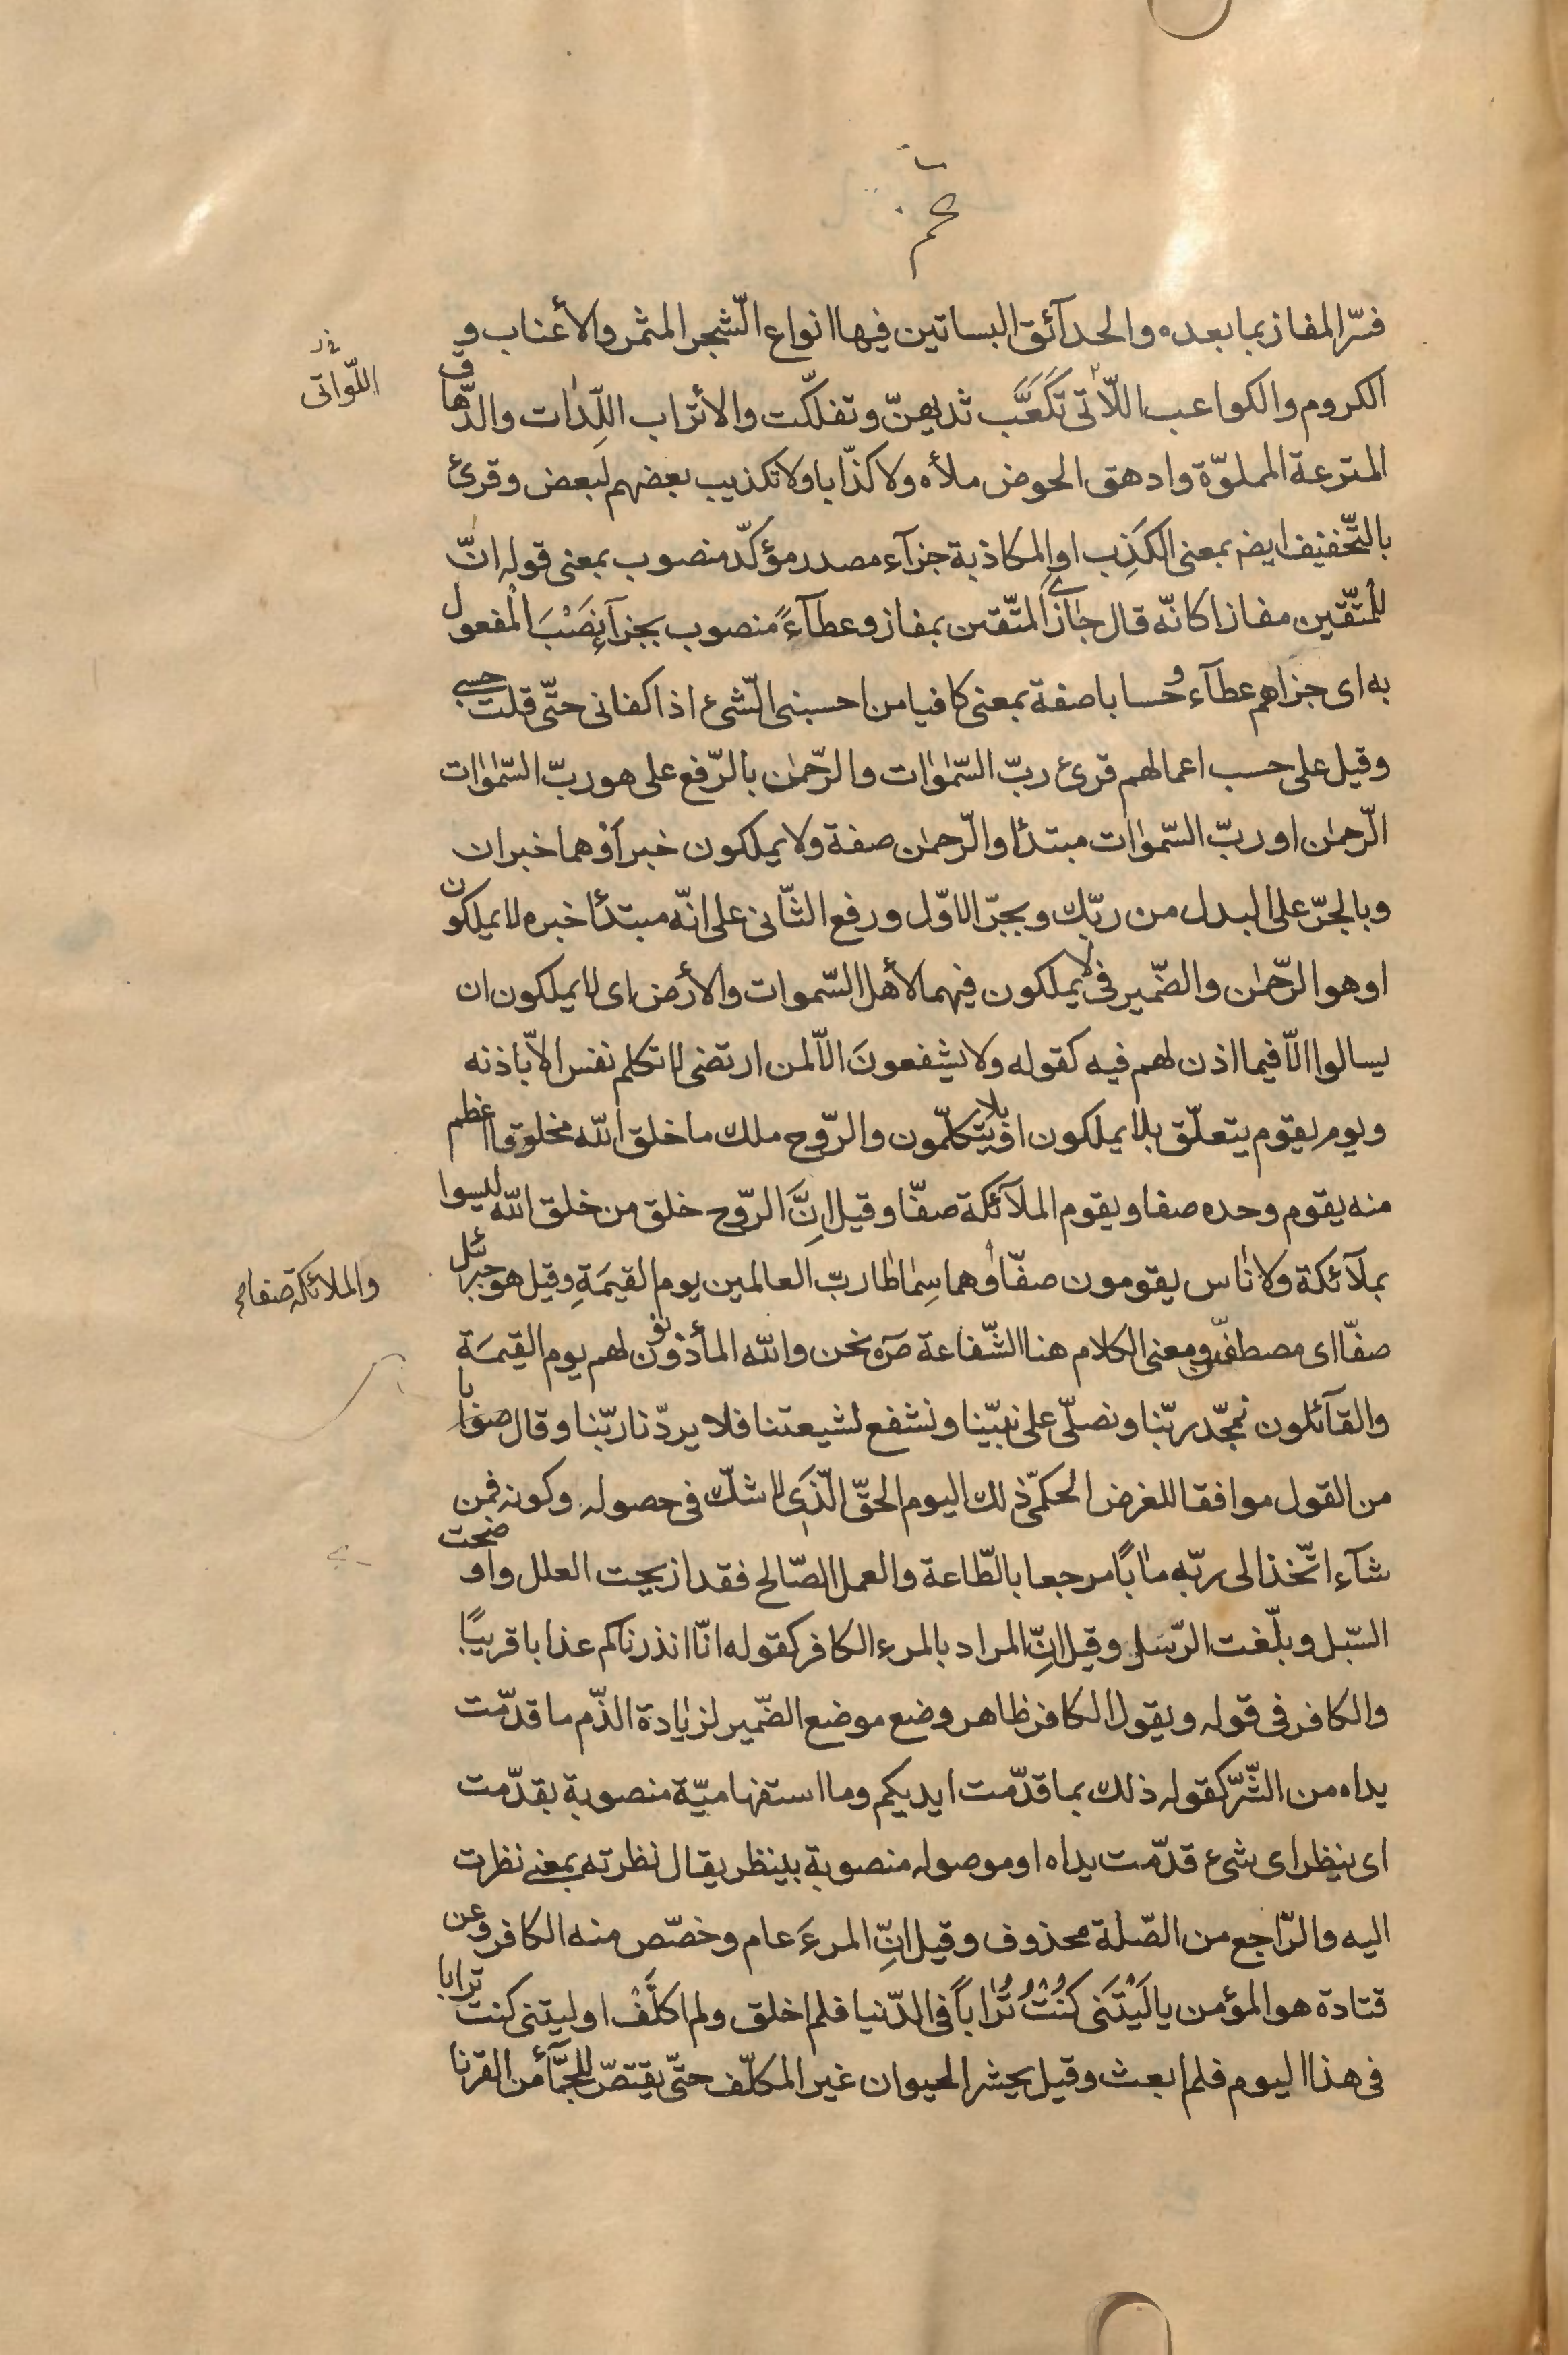 عم
فسّر المفاز بما بعده والحدآئق البساتين فيها انواع الشّجر المثمر والأعناب و
الكروم والكواعب اللّاتى تَكَعَّبَ ثديهنّ وتفلكّت والأتراب اللِّدٰات والدّهاق
اللّواتى
المترعة المملوّة وادهق الحوض ملأه ولا كذّابا ولا تكذيب بعضهم لبعض وقرئ
بالتّخفيف ايضه بمعنى الكَذِب او المكاذبة جزآء مصدر مؤكدّ منصوب بمعنى قوله انّ
للمتّقين مفازا كانّه قال جازى المتّقين بمفاز وعطآءً منصوب بجزآءٍ نَصْبَ المفعول
به اى جزاهم عطآء وحسابا صفة بمعنى كافيا من احسبنى الشّىء اذا كفانى حتّى قلت حسبى
وقيل على حسب اعمالهم قرئ ربّ السّمٰوٰات والرّحمٰن بالرّفع على هو ربّ السّمٰوٰات
الرّحمٰن او ربّ السّموٰات مبتدأ والرّحمٰن صفة ولا يملكون خبر أوْ هما خبران
وبالجرّ على البدل من ربّك وبجرّ الاوّل ورفع الثّانى على انّه مبتدأ خبره لا يملكون
او هو الرّحمٰن والضّمير فى لا يملكون فيهما لأهل السّموات والأرض اى لا يملكون ان
يسالوا الّا فيما اذن لهم فيه كقوله ولا يشفعونَ الّا لمن ارتضى لا تكلم نفس الّا باذنه
ويوم يقوم يتعلّق بلا يملكون او بلا يتكلّمون والرّوح ملك ما خلق الله مخلوقا اعظم
منه يقوم وحده صفا ويقوم الملآئكة صفّا وقيل انَّ الرّوح خلق من خلق الله ليسوا
بملآئكة ولا ناس يقومون صفّا وهما سِمٰاطا ربّ العالمين يوم القيٰمَةِ وقيل هو جبرئيل
والملائكة صفا صح
صفّا اى مصطفّين ومعنى الكلام هنا الشّفاعة ص‍ٓ نحن والله المأذونون لهم يوم القيٰمَة
والقآئلون نمجّد ربّنا ونصلّى على نبيّنا ونشفع لشيعتنا فلا يردّنا ربّنا وقال صوابا
من القول موافقا للغرض الحكمىّ ذلك اليوم الحقّ الّذى لا شكّ فى حصوله وكونه فمن
شآء اتّخذ الى ربّه مٰابًا مرجعا بالطّاعة والعمل الصّالح فقد ازيحت العلل واوضحت
السّبل وبلّغت الرّسل وقيل انّ المراد بالمرء الكافر كقوله انّا انذرناكم عذابا قريبًا
والكافر فى قوله ويقول الكافر ظاهر وضع موضع الضّمير لزيٰادة الذّم ما قدّمت
يداه من الشّرّ كقوله ذلك بما قدّمت ايديكم وما استفهاميّة منصوبة بقدّمت
اى ينظر اى شىء قدّمت يداه او موصوله منصوبة بينظر يقال نظرته بمعنى نظرت
اليه والرّاجع من الصّلة محذوف وقيل انّ المرءَ عام وخصّص منه الكافر وعن
قتادة هو المؤمن يا لَيْتَنى كُنْتُ تُرٰاباً فى الدّنيا فلم اخلق ولم اكلَّفْ او ليتنى كنت ترابا
فى هذا اليوم فلم ابعث وقيل يحشر الحيوان غير المكلّف حتّى يقتصّ للجمّآء من القرنا